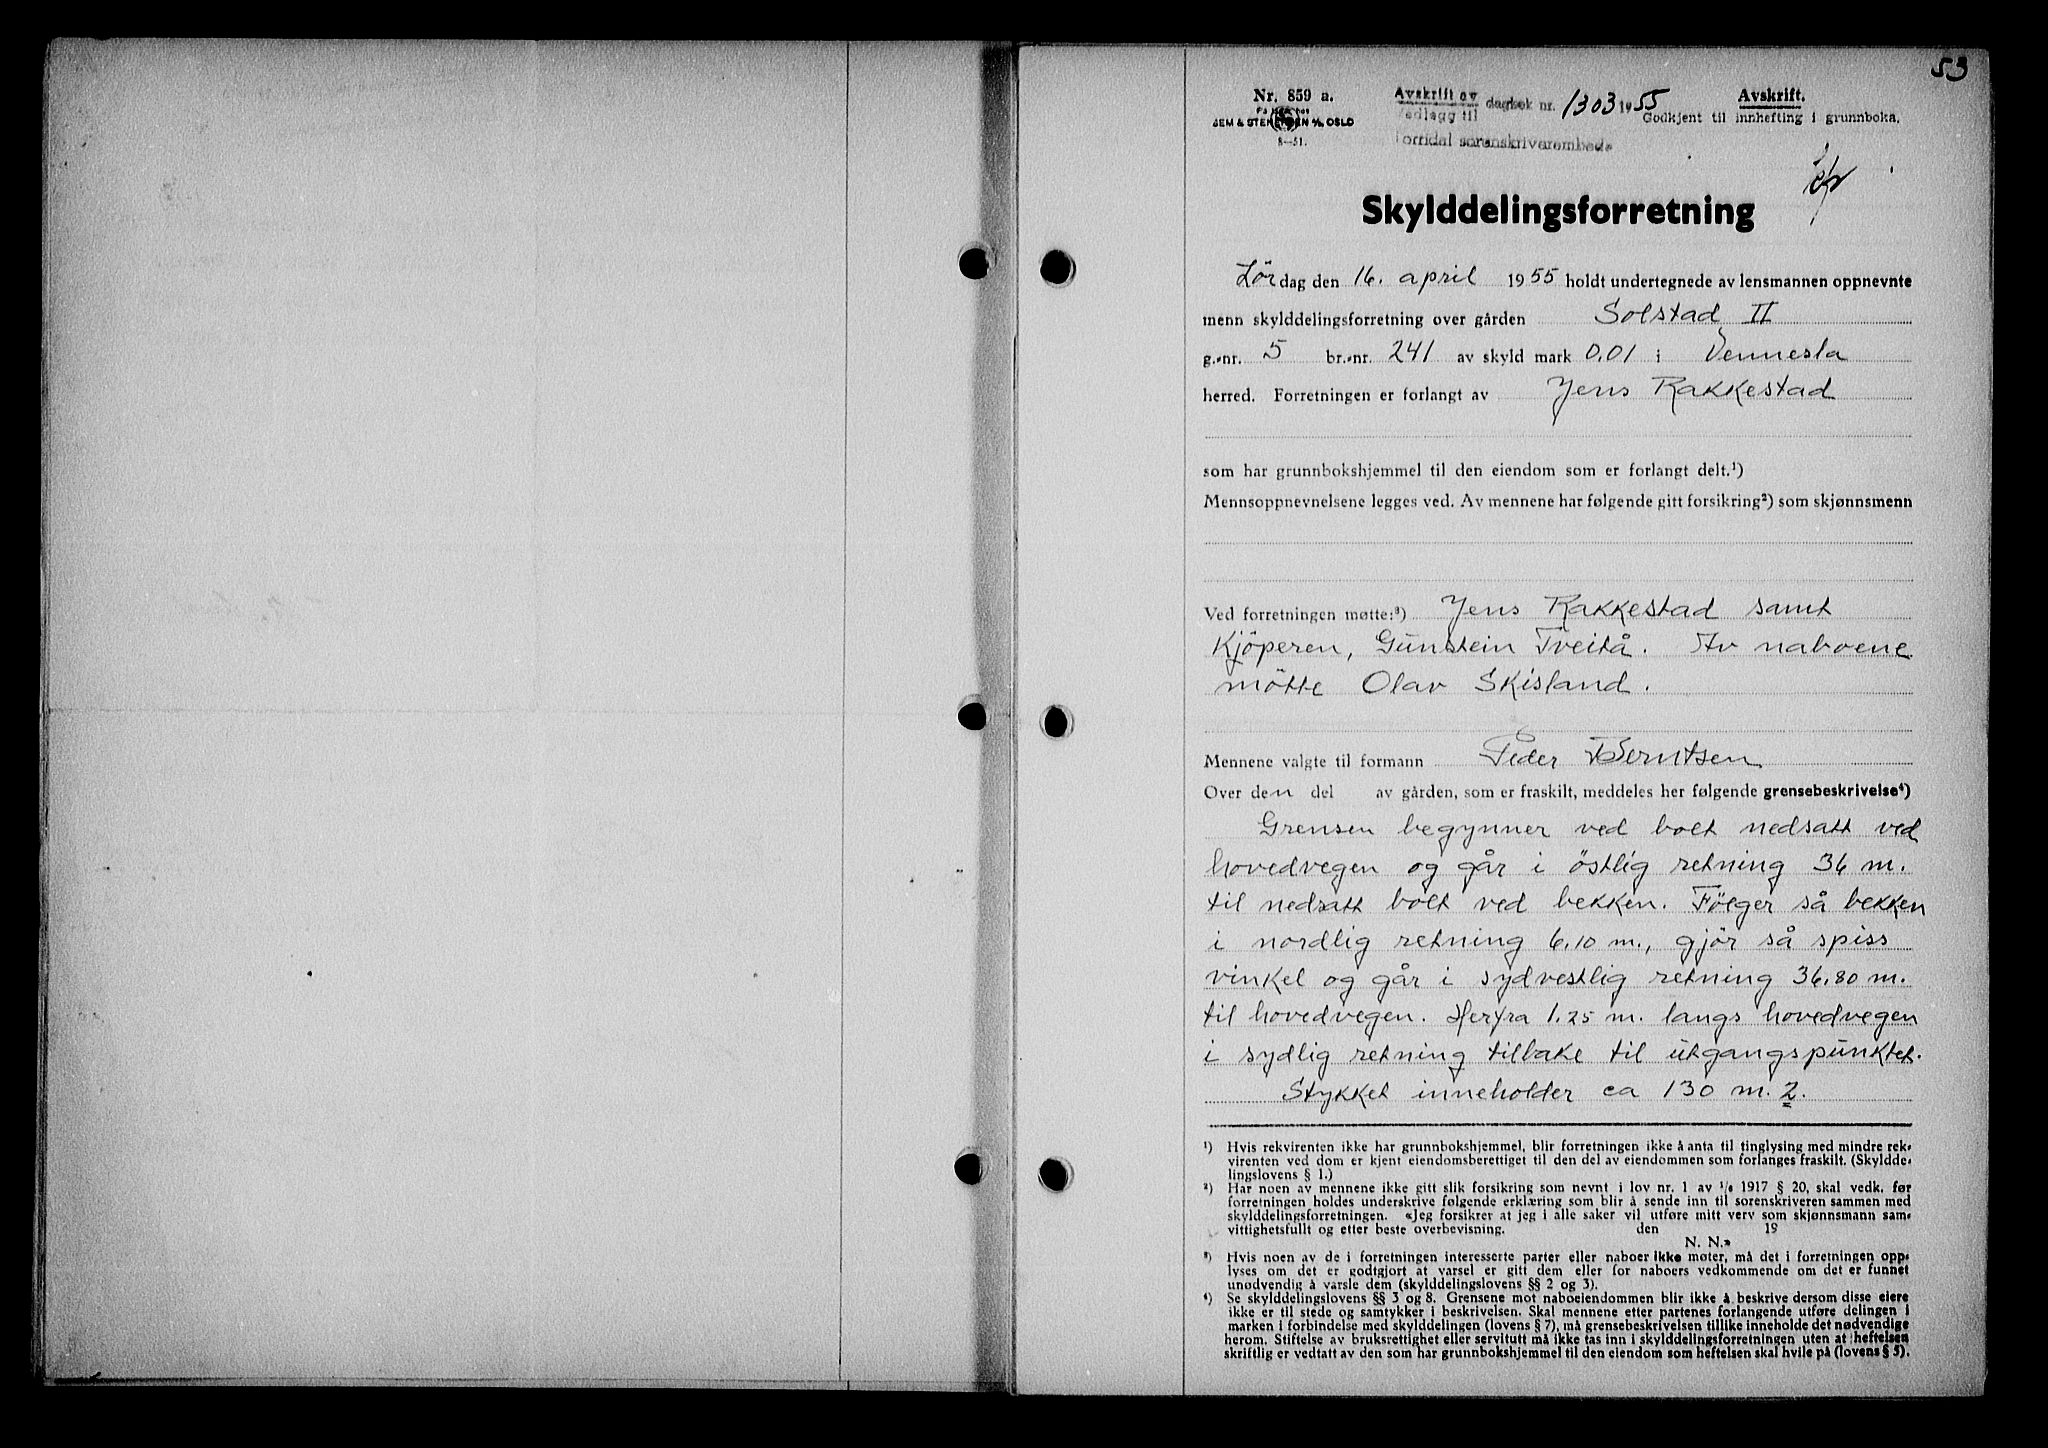 53
Nr. 859 a.
SEM & STENERSEN A/S OSLO
8—51.
Avskrift av
Vedlagg til
dagbok nr. 1303 1955
Torridal sorenskriverembede
Avskrift.
Godkjent til innhefting i grunnboka.
Skylddelingsforretning
Lördag den 16. april 1955 holdt undertegnede av lensmannen oppnevnte
menn skylddelingsforretning over gården Solstad II
g.-nr. 5 br.-nr. 241 av skyld mark 0.01 i Vennesla
herred. Forretningen er forlangt av Jens Rakkestad
som har grunnbokshjemmel til den eiendom som er forlangt delt.¹)
Mennsoppnevnelsene legges ved. Av mennene har følgende gitt forsikring²) som skjønnsmenn
Ved forretningen møtte:³) Jens Rakkestad samt
Kjöperen, Gunstein Tveitå. Av naboene
mötte Olav Skisland.
Mennene valgte til formann Peder Berntsen
Over den del av gården, som er fraskilt, meddeles her følgende grensebeskrivelse⁴)
Grensen begynner ved bolt nedsatt ved
hovedvegen og går i östlig retning 36 m.
til nedsatt bolt ved bekken. Fölger så bekken
i nordlig retning 6.10 m., gjör så spiss
vinkel og går i sydvestlig retning 36.80 m.
til hovedvegen. Herfra 1.25 m. langs hovedvegen
i sydlig retning tilbake til utgangspunktet.
Stykket inneholder ca 130 m.2.
¹) Hvis rekvirenten ikke har grunnbokshjemmel, blir forretningen ikke å anta til tinglysing med mindre rek-
virenten ved dom er kjent eiendomsberettiget til den del av eiendommen som forlanges fraskilt. (Skyldde-
lingslovens § 1.)
²) Har noen av mennene ikke gitt slik forsikring som nevnt i lov nr. 1 av ¹/₆ 1917 § 20, skal vedk. før
forretningen holdes underskrive følgende erklæring som blir å sende inn til sorenskriveren sammen med
skylddelingsforretningen. «Jeg forsikrer at jeg i alle saker vil utføre mitt verv som skjønnsmann sam-
vittighetsfullt og etter beste overbevisning. den 19
N. N.»
³) Hvis noen av de i forretningen interesserte parter eller naboer ikke møter, må det i forretningen opp-
lyses om det er godtgjort at varsel er gitt dem eller for naboers vedkommende om det er funnet
unødvendig å varsle dem (skylddelingslovens §§ 2 og 3).
⁴) Se skylddelingslovens §§ 3 og 8. Grensene mot naboeiendommen blir ikke å beskrive dersom disse eiere
ikke er til stede og samtykker i beskrivelsen. Skal mennene etter partenes forlangende utføre delingen i
marken i forbindelse med skylddelingen (lovens § 7), må grensebeskrivelsen tillike inneholde det nødvendige
herom. Stiftelse av bruksrettighet eller servitutt må ikke tas inn i skylddelingsforretningen uten at heftelsen
skriftlig er vedtatt av den som har grunnbokshjemmel til den eiendom som heftelsen skal hvile på (lovens § 5).